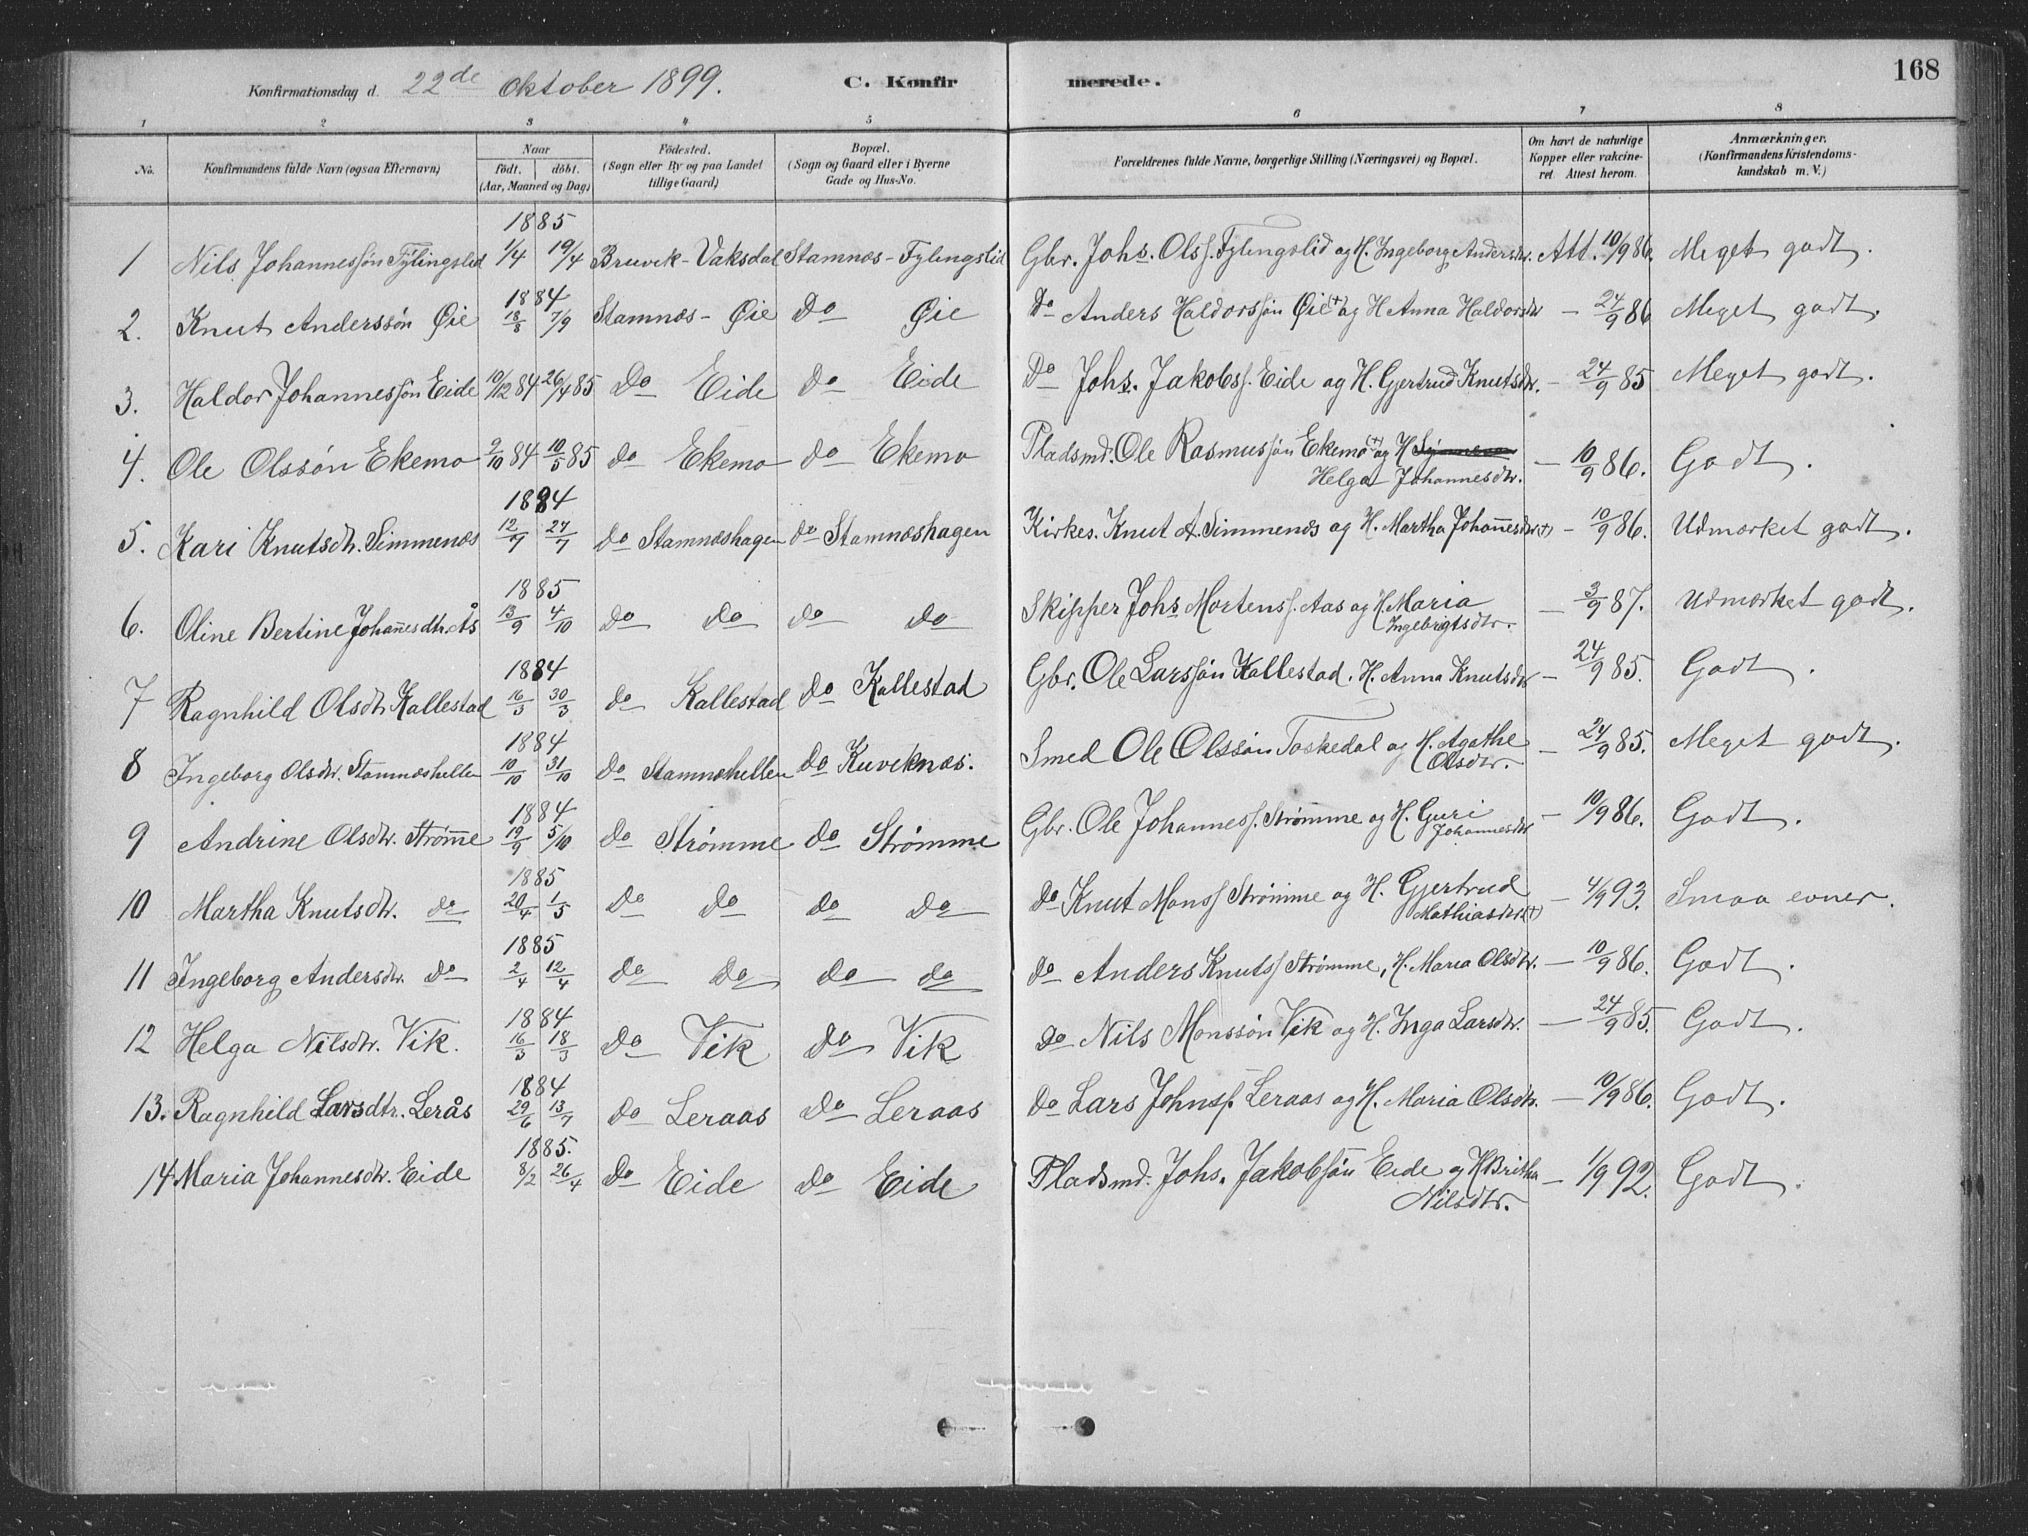 168
Konfirmationsdag d. 22de Oktober 1899. C. Konfirmerede.
1 2 3 4 5 6 7 8
No. Konfirmandens fulde Navn (ogsaa Efternavn) Naar født. døbt. (Aar, Maaned og Dag) Fødested. (Sogn eller By og paa Landet tillige Gaard) Bopæl. (Sogn og Gaard eller i Byerne Gade og Hus-No. Forældrenes fulde Navne, borgerlige Stilling (Næringsvei) og Bopæl. Om havt de naturlige Kopper eller vakcineret. Attest herom. Anmærkninger. (Konfirmandens Kristendomskundskab m. V.)
1885
1 Nils Johannessøn Fylingslid 1/4 19/4 Bruvik - Vaksdal Stamnæs - Fylingslid Gbr. Johs. Olss. Fylingslid og H. Ingeborg Andersdtr. Att. 10/9 86. Meget godt.
1884
2. Knut Anderssøn Øie 18/8 7/9 Stamnæs - Øie Do Øie Do Anders Haldorssøn Øie + og H Anna Haldorsdtr — 24/9 86 Meget godt.
3. Haldor Johannessøn Eide 10/12 84 26/4 85 Do Eide Do Eide Do Johs. Jakobss. Eide og H. Gjertrud Knutsdtr. — 24/9 85 Meget godt.
4. Ole Olssøn Ekemo 2/10 84 10/5 85 do Ekemo do Ekemo Pladsmd. Ole Rasmussøn Ekemo (+) og H. Helga Johannesdtr. — 10/9 86. Godt.
1884
5. Kari Knutsdtr. Simmenæs 12/7 27/7 do Stamnæshagen do Stamnæshagen Kirkes. Knut A. Simmenæs og H. Martha Johannesdtr (+) — 10/9 86. Udmærket godt.
1885
6. Oline Bertine Johannesdtr. Ås 13/9 4/10 do do do do Skipper Johs Mortenss. Aas og H. Maria Ingebrigtsdtr. — 3/9 87. Udmærket godt.
1884
7 Ragnhild Olsdtr Kallestad 16/3 30/3 do Kallestad do Kallestad Gbr. Ole Larssøn Kallestad. H. Anna Knutsdtr — 24/9 85. Godt.
1884
8 Ingeborg Olsdtr. Stamnæshellen 10/10 31/10 do Stamnæshellen do Kuviknæs. Smed Ole Olssøn Toskedal og H. Agathe Olsdtr. — 24/9 85. Meget godt.
1884
9 Andrine Olsdtr. Strømme 19/9 5/10 do Strømme do Strømme Gbr. Ole Johanness. Strømme og H. Guri Johannesdtr — 10/9 86. Godt.
1885
10 Martha Knutsdtr. do 20/4 1/5 do do do do do Knut Monss Strømme og H. Gjertrud Mathiasdtr (+) — 4/9 93. Smaa evner.
1885
11 Ingeborg Andersdtr. do 2/4 12/4 do do do do do Anders Knutss Strømme, H. Maria Olsdtr. — 10/9 86. Godt.
1884
12 Helga Nilsdtr. Vik. 16/3 18/3 do Vik do Vik do Nils Monssøn Vik og H. Inga Larsdtr. — 24/9 85. Godt.
1884
13. Ragnhild Larsdtr. Lerås 29/6 13/7 do Leraas do Leraas do Lars Johnss. Leraas og H. Maria Olsdtr. — 10/9 86. Godt.
1885.
14 Maria Johannesdtr. Eide 8/2 26/4 do Eide do Eide Pladsmd. Johs. Jakobssøn Eide og H Britha Nilsdtr. — 1/9 92. Godt.